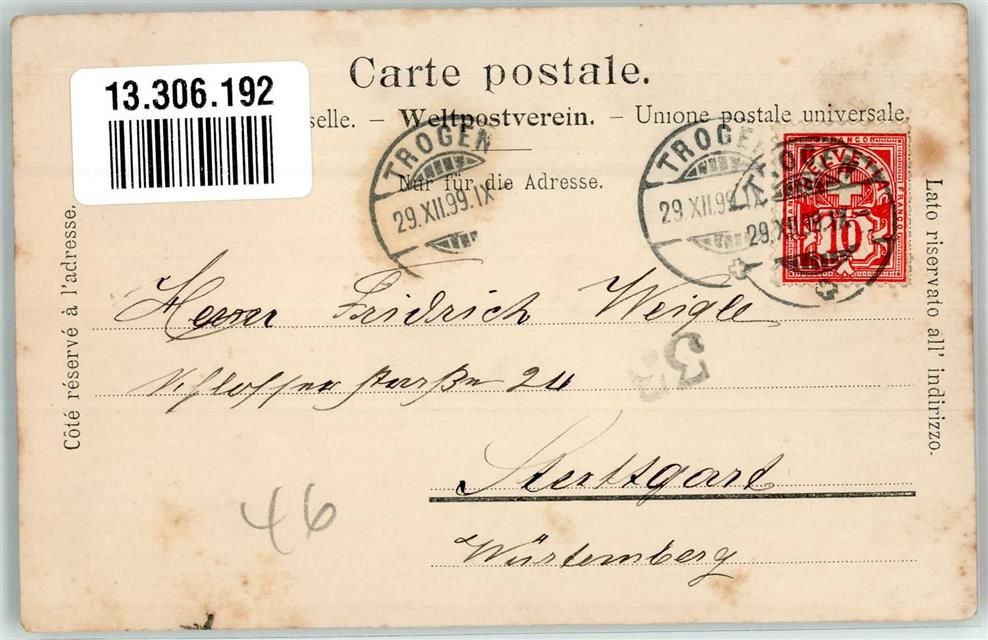 13.306.192
Carte postale.
selle. – Weltpostverein. – Unione postale universale.
Nur für die Adresse.
TROGEN
29.XII.99.IX
TROGEN
29.XII.99.IX
29.XII.99.IX
FRANCO
HELVETIA
10
Côté réservé à l'adresse.
Lato riservato all' indirizzo.
Herrn Fridrich Weigle
Schlosserstraße 24
33
Stuttgart
Würtemberg
46